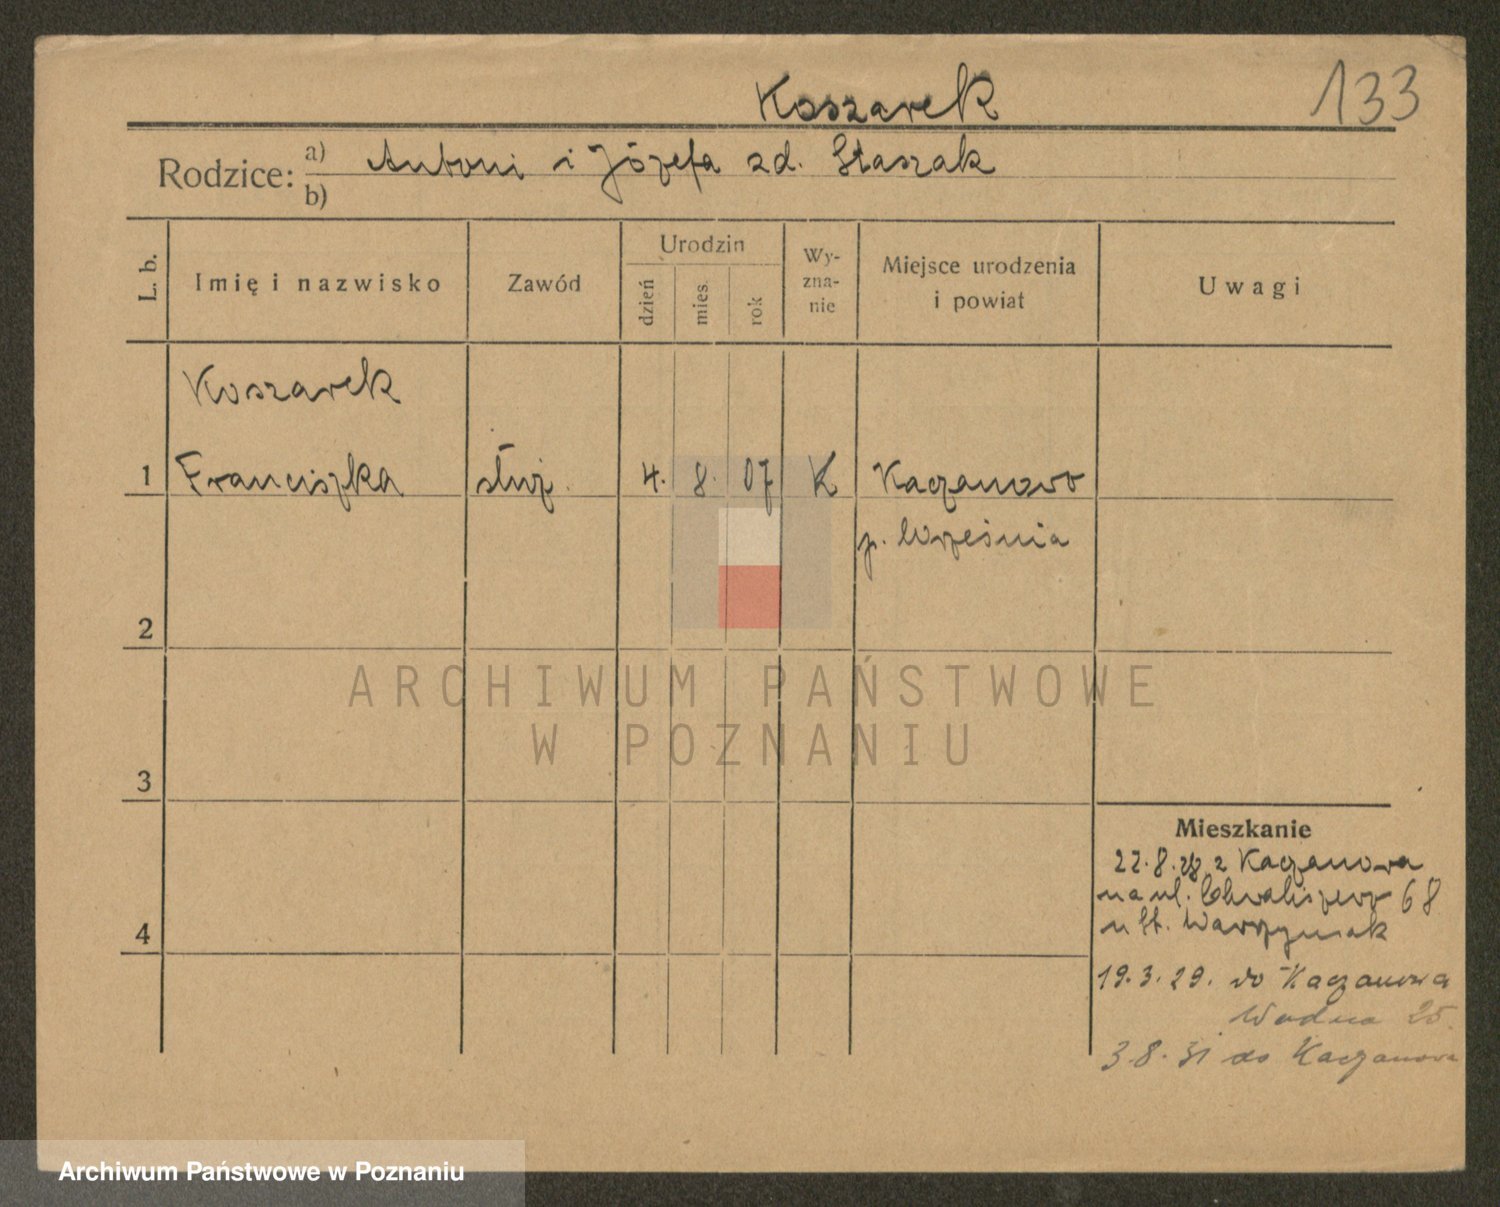 Koszarek
133
Rodzice: a) Antoni i Józefa zd. Staszak
b)
L. b.
Imię i nazwisko
Zawód
Urodzin
dzień
mies.
rok
Wy-
zna-
nie
Miejsce urodzenia
i powiat
Uwagi
Koszarek
1 Franciszka służ. 4. 8. 07 K Kaczanowo
p. Września
2
3
4
Mieszkanie
22.8.28 z Kaczanowa
na ul. Chwaliszewo 68
u St. Wawrzyniak
19.3.29. do Kaczanowa
Wodna 25.
3.8.31 do Kaczanowa
ARCHIWUM PAŃSTWOWE
W POZNANIU
Archiwum Państwowe w Poznaniu